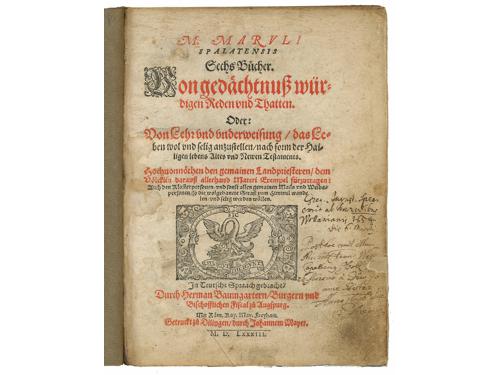 M. MARVLI
SPALATENSIS
Sechs Bücher.
Von gedächtnuß wür-
digen Reden vnd Thatten.
Oder:
Von Lehr vnd vnderweisung / das Le-
ben wol vnd selig anzustellen / nach form der Hai-
ligen lebens Altes vnd Newen Testaments.
Hochvonnöthen den gemainen Landpriestern / dem
Völcklin darauß allerhand Materi Exempel fürzutragen:
Auch den Klosterpersonen / vnd sonst allen gemainen Mans vnd Weibs-
personen / so die wolgebante Strass zum Himmel wandlen
vnd selig werden wöllen.
In Teutsche Spraach gebracht /
Durch Herman Baumgartern / Burgern vnd
Bischofflichen Fiscal zu Augspurg.
Mit Röm. Kay. May. Freyhait.
Getruckt zu Dilingen / durch Johannem Mayer.
M. D. LXXXIII.